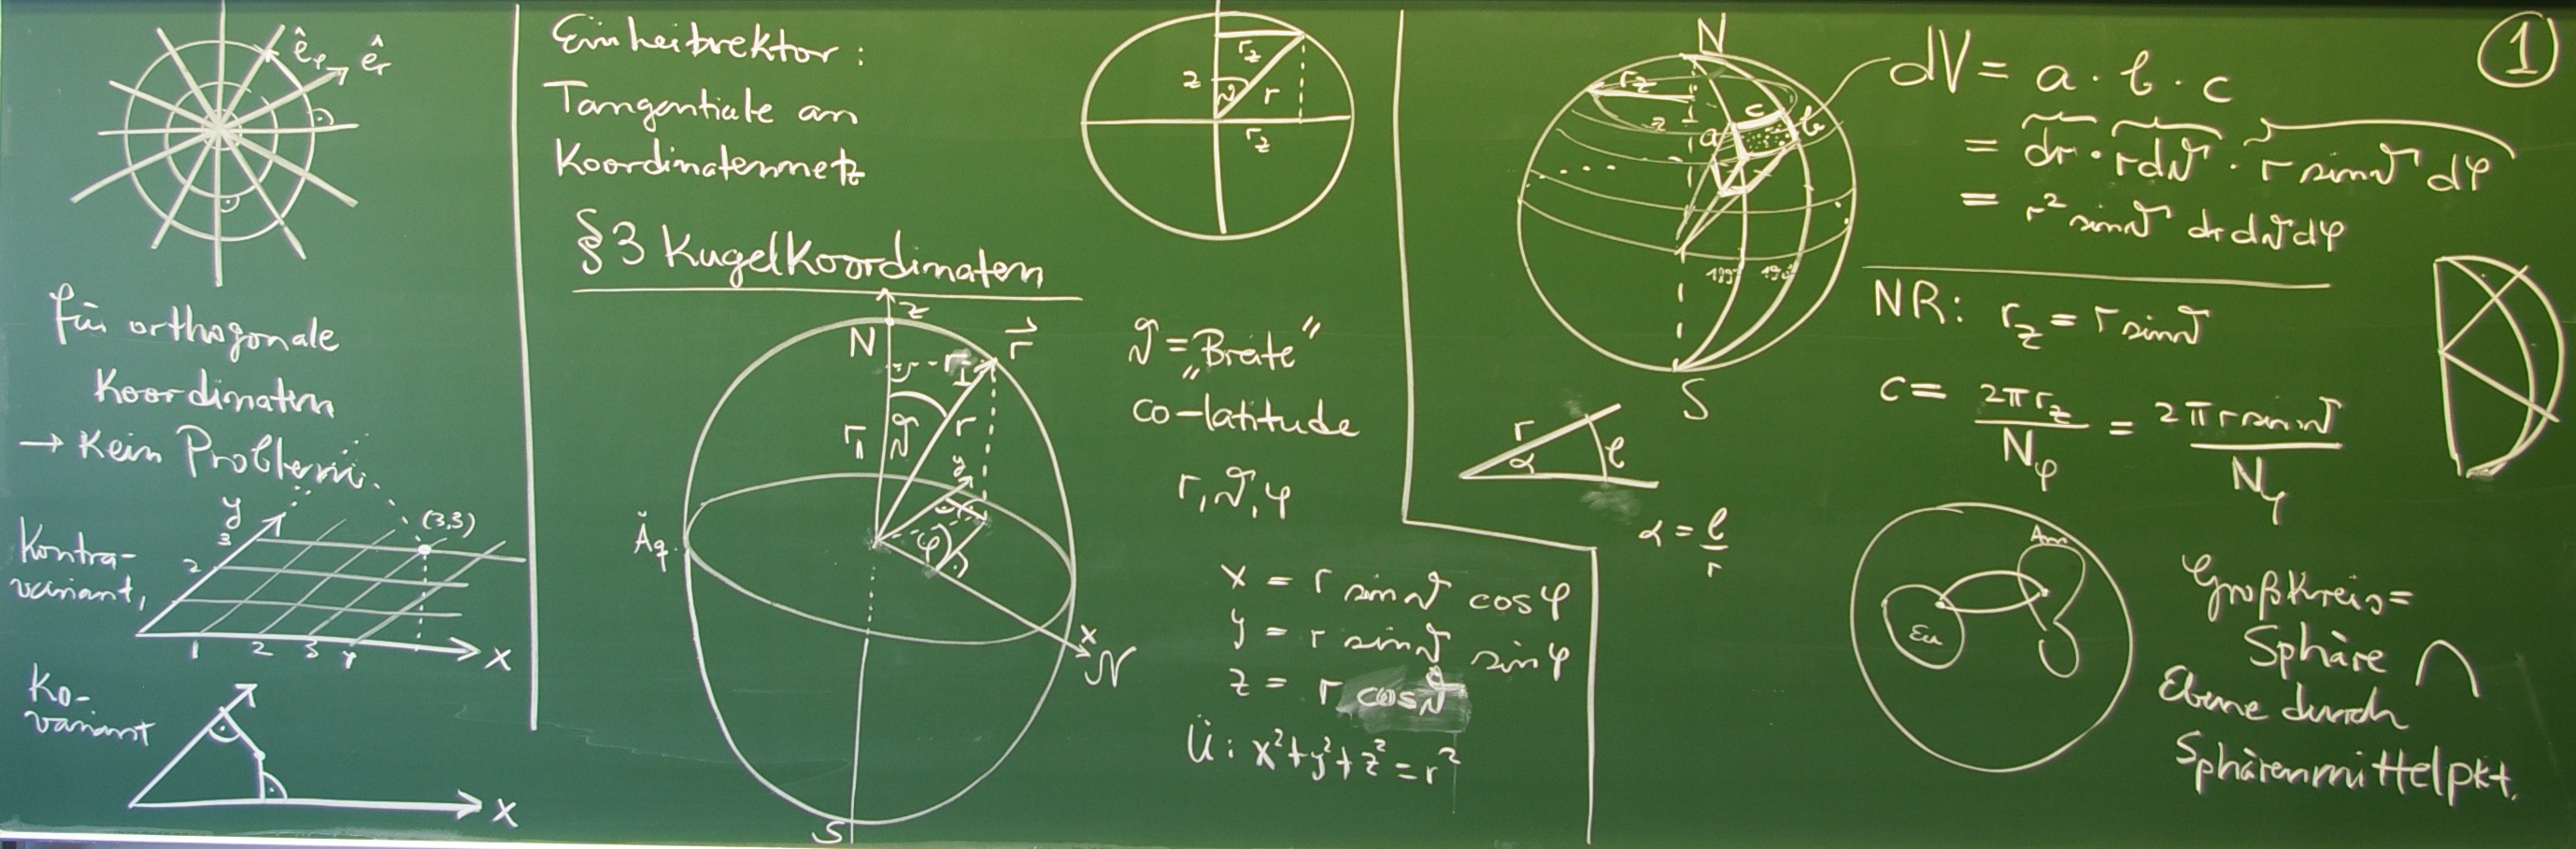 ê_φ ê_r
für orthogonale
Koordinaten
→ Kein Problem
Kontra-
variant,
y
3
2
(3,3)
1 2 3 4 x
Ko-
variant
x
Einheitvektor:
Tangentiale an
Koordinatennetz
§3 Kugelkoordinaten
r_z
z ϑ r
r_z
z
N
r⃗
r_⊥
r_∥ ϑ r
y
φ
Äq.
x
S
ϑ = „Breite"
co-latitude
r, ϑ, φ
x = r sinϑ cosφ
y = r sinϑ sinφ
z = r cosϑ
Ü: x²+y²+z²=r²
①
N
r_z
z
a c b
S
dV = a · b · c
= dr · r dϑ · r sinϑ dφ
= r² sinϑ dr dϑ dφ
NR: r_z = r sinϑ
c = 2πr_z / N_φ = 2πr sinϑ / N_φ
r
α l
α = l/r
Eu
Am
Großkreis =
Sphäre ∩
Ebene durch
Sphärenmittelpkt.